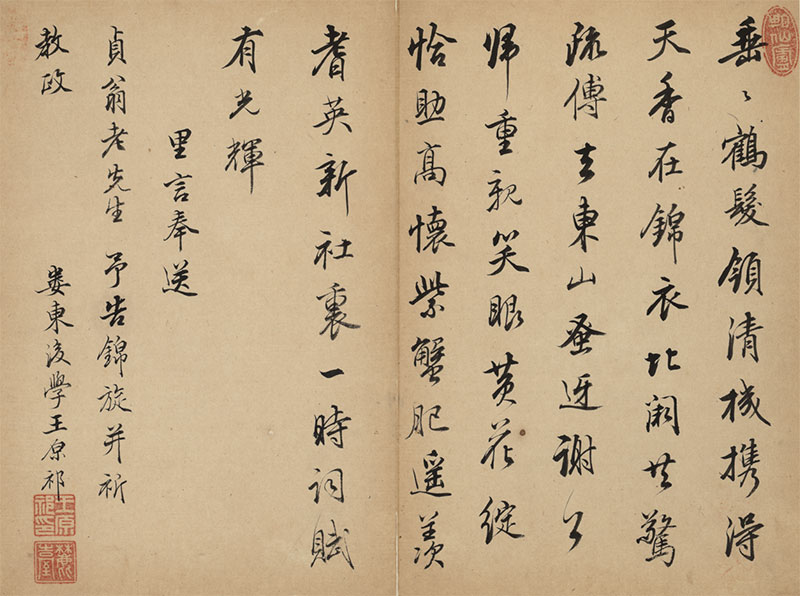 垂〻鶴髮領清機攜得
天香在錦衣北闕共驚
疏傅去東山爭迓謝公
歸重親笑眼黃花綻
恰助高懷紫蟹肥遥羨
耆英新社裏一時詞賦
有光輝
里言奉送
貞翁老先生予告錦旋并祈
教政
婁東後學王原祁
王原祁印